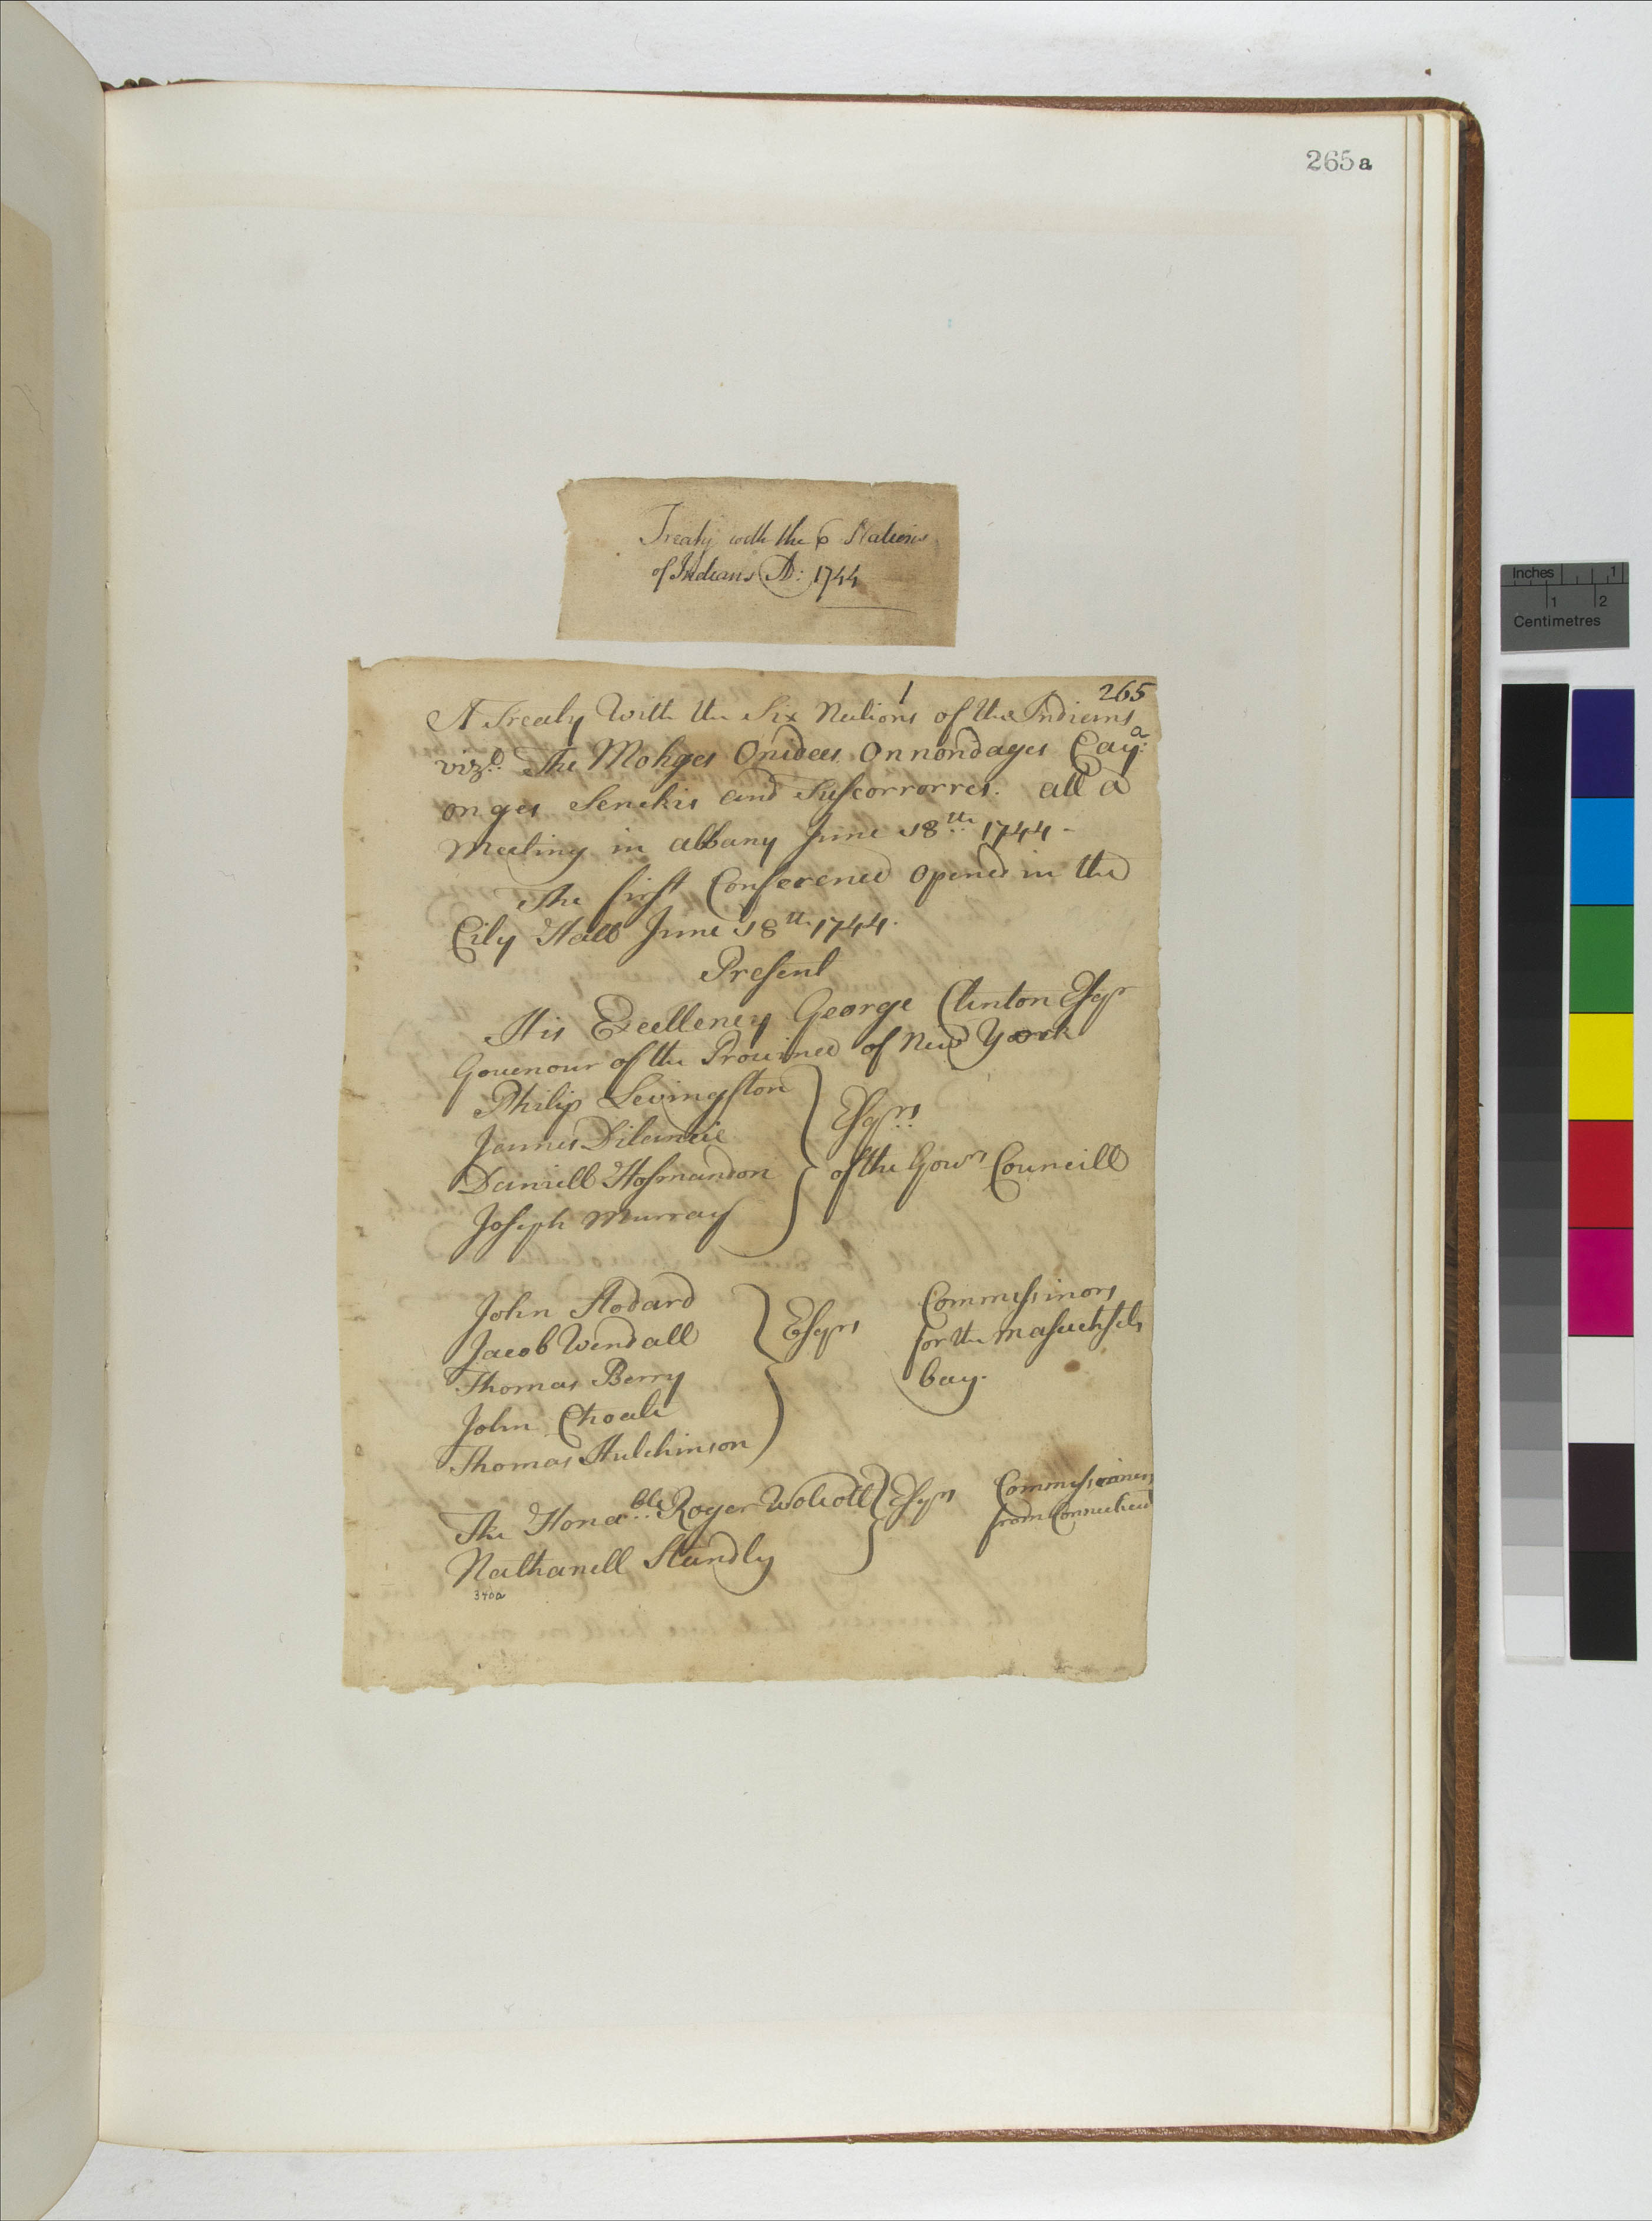 265a
Treaty with the 6 Nations
of Indians A: 1744
1 265
A Treaty With the Six Nations of the Indians
vizd. The Mohges Onidees Onnondages Caya:
onges Senekis and Tuscorrorres. all a
Meeting in albany June 18th 1744 -
The first Conference opened in the
City Hall June 18th 1744.
Present
His Excellency George Clinton Esqr
Gouenour of the Prouince of New York
Philip Levingston
James Dilancie
Daniell Hosmandon
Joseph Murray
Esqrs
of the Gowrs Councill
John Stodard
Jacob Wendall
Thomas Berry
John Choate
Thomas Hutchinson
Esqrs
Commissinors
for the Masuchsets
bay.
The Honable Roger Wolcott Esqrs
Nathanell Standly
Commissioners
from Connecticut
340a
Inches 1
1 2
Centimetres